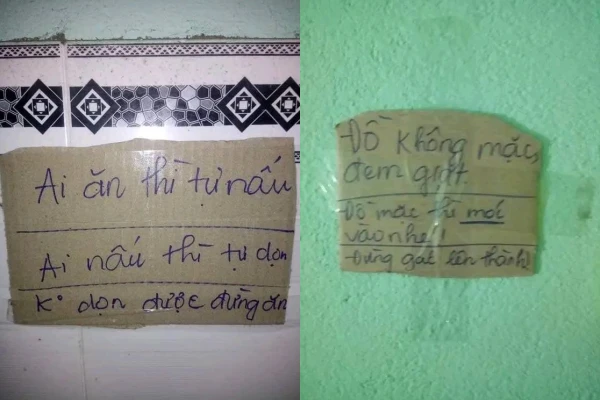 Ai ăn thì tự nấu
Ai nấu thì tự dọn
K° dọn được đừng ăn
Đồ không mặc,
đem giặt.
Đồ mặc thì móc
vào nhé!
Đừng gác lên thành!